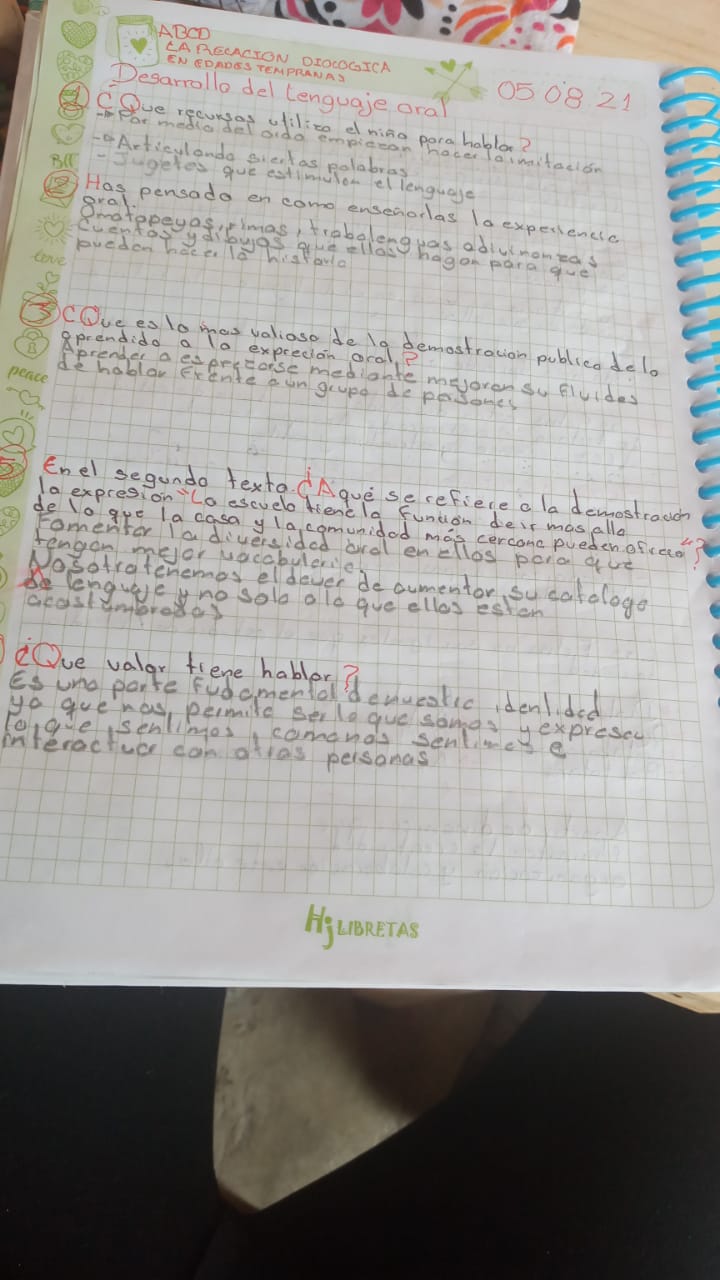 ABCD
LA RELACION DIOLOGICA
EN EDADES TEMPRANAS
Desarrollo del Lenguaje oral
05 08 21
1 ¿Que recursos utiliza el niño para hablar?
Por medio del oido empiezan hacer la imitación
-Articulando siertas palabras
-Jugetes que estimulan el lenguaje
2 Has pensado en como enseñarlas la experiencia
oral.
Omatopeyas, rimas, trabalenguas adivinanzas
Cuentos y dibujos que ellos hagan para que
puedan hacer la historia
3 ¿Que es lo mas valioso de la demostracion publica de lo
aprendido a la exprecion oral?
Aprender a espresarse mediante mejoran su fluides
de hablar frente a un grupo de personas
En el segundo texto ¿A qué se refiere a la demostracion
la expresión "La escuela tiene la función de ir mas alla
de lo que la casa y la comunidad más cercana pueden ofrecer"?
Fomentar la diversidad oral en ellos para que
tengan mejor vocabulario.
Nosotra tenemos el dever de aumentar su catologo
de lenguaje y no solo a lo que ellos esten
acostumbrados
¿Que valor tiene hablar?
Es una parte fudamental de nuestra identidad
ya que nos permite ser lo que somos y expresar
lo que sentimos, comonos sentimos e
interactuar con otras personas
BFF
Love
peace
Hj LIBRETAS